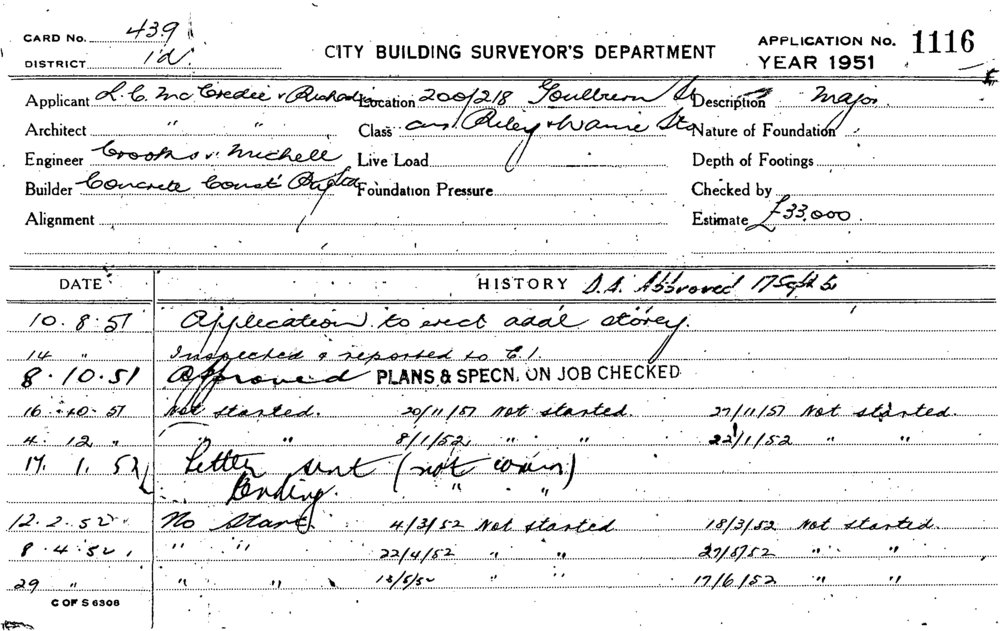 CARD No. 439
DISTRICT 1d
CITY BUILDING SURVEYOR'S DEPARTMENT
APPLICATION No. 1116
YEAR 1951
Applicant L. C. McCredie & Location 200/218 Goulburn St Description Major
Architect " " Class cnr. Riley & Warne Sts Nature of Foundation
Engineer Crooks & Michell Live Load Depth of Footings
Builder Concrete Const Foundation Pressure Checked by
Alignment Estimate £33,000.
DATE HISTORY D.A. Approved 17 Sept 51
10.8.51 Application to erect addl storey.
14 " Inspected & reported to C.I.
8.10.51 Approved PLANS & SPECN. ON JOB CHECKED
16.10.51 Not started. 20/11/51 Not started. 27/11/51 Not started.
4.12 " " " 8/1/52 " " 22/1/52 " "
17.1.52 Letter sent (not comm)
" "
12.2.52 No Start. 4/3/52 Not started 18/3/52 Not started.
8.4.52 " " 22/4/52 " " 27/5/52 " "
29 " " " 13/5/52 " " 17/6/52 " "
C OF S 6308